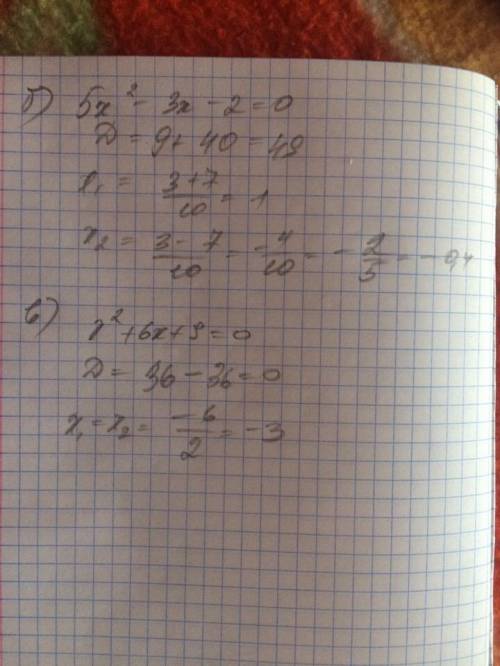 б) 5x² - 3x - 2 = 0
D = 9 + 40 = 49
x₁ = (3+7)/10 = 1
x₂ = (3-7)/10 = -4/10 = -2/5 = -0,4
в) x² + 6x + 9 = 0
D = 36 - 36 = 0
x₁ = x₂ = -6/2 = -3